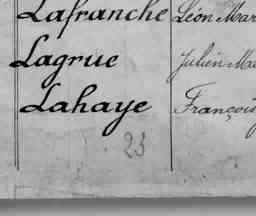 Lafranche Léon Mar
Lagrue Julien Ma
Lahaye François
23